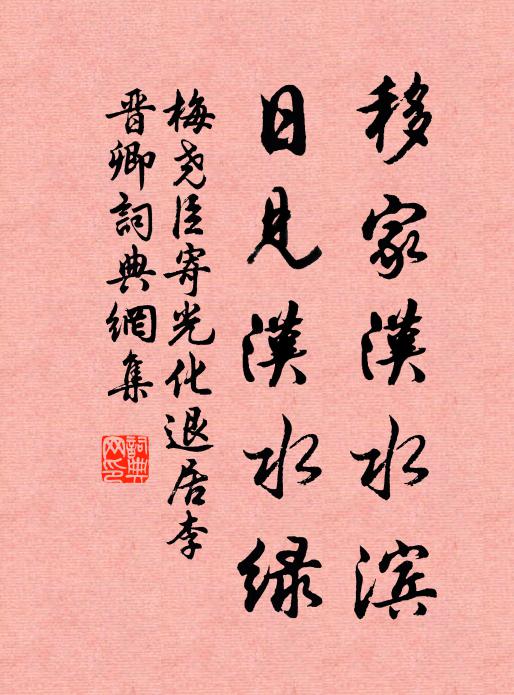 移家漢水滨
日見漢水绿
梅尧臣寄光化退居李
晋卿詞典網集
詞典网印